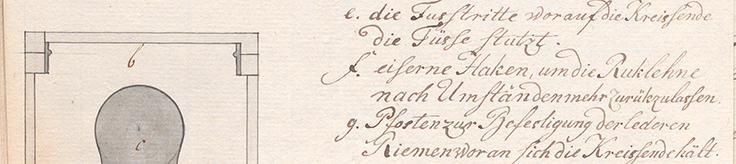 e. die Fusstritte worauf die Kreissende
die Füsse stutzt.
f. eiserne Haken, um die Ruklehne
nach Umständen mehr zurükzulassen.
g. Pfosten zur Befestigung der lederen
Riemen woran sich die Kreissende hält.
b
c